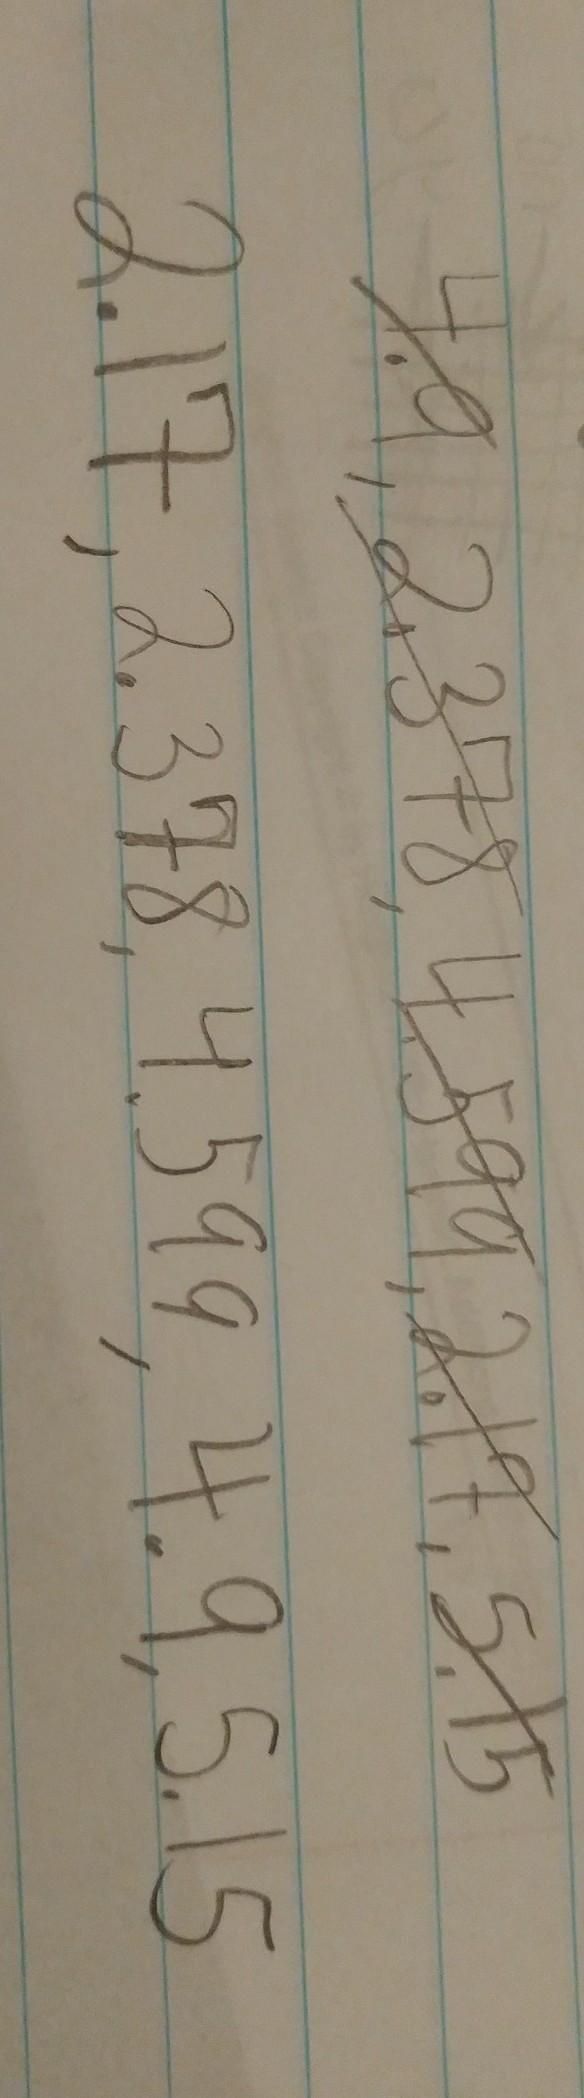 4.9, 2.378, 4.599, 2.17, 5.15
2.17, 2.378, 4.599, 4.9, 5.15